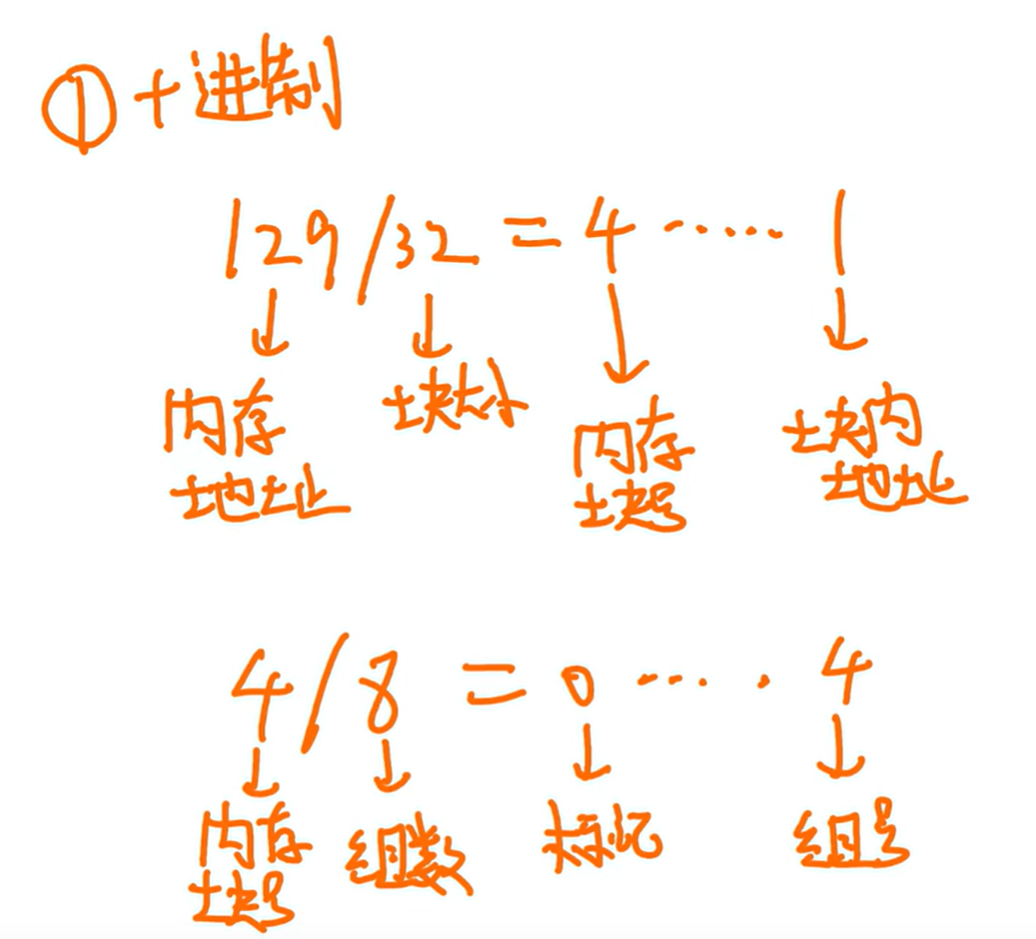 ① 十进制
129/32 = 4 …… 1
内存地址 块大小 内存块号 块内地址
4/8 = 0 …… 4
内存块号 组数 标记 组号